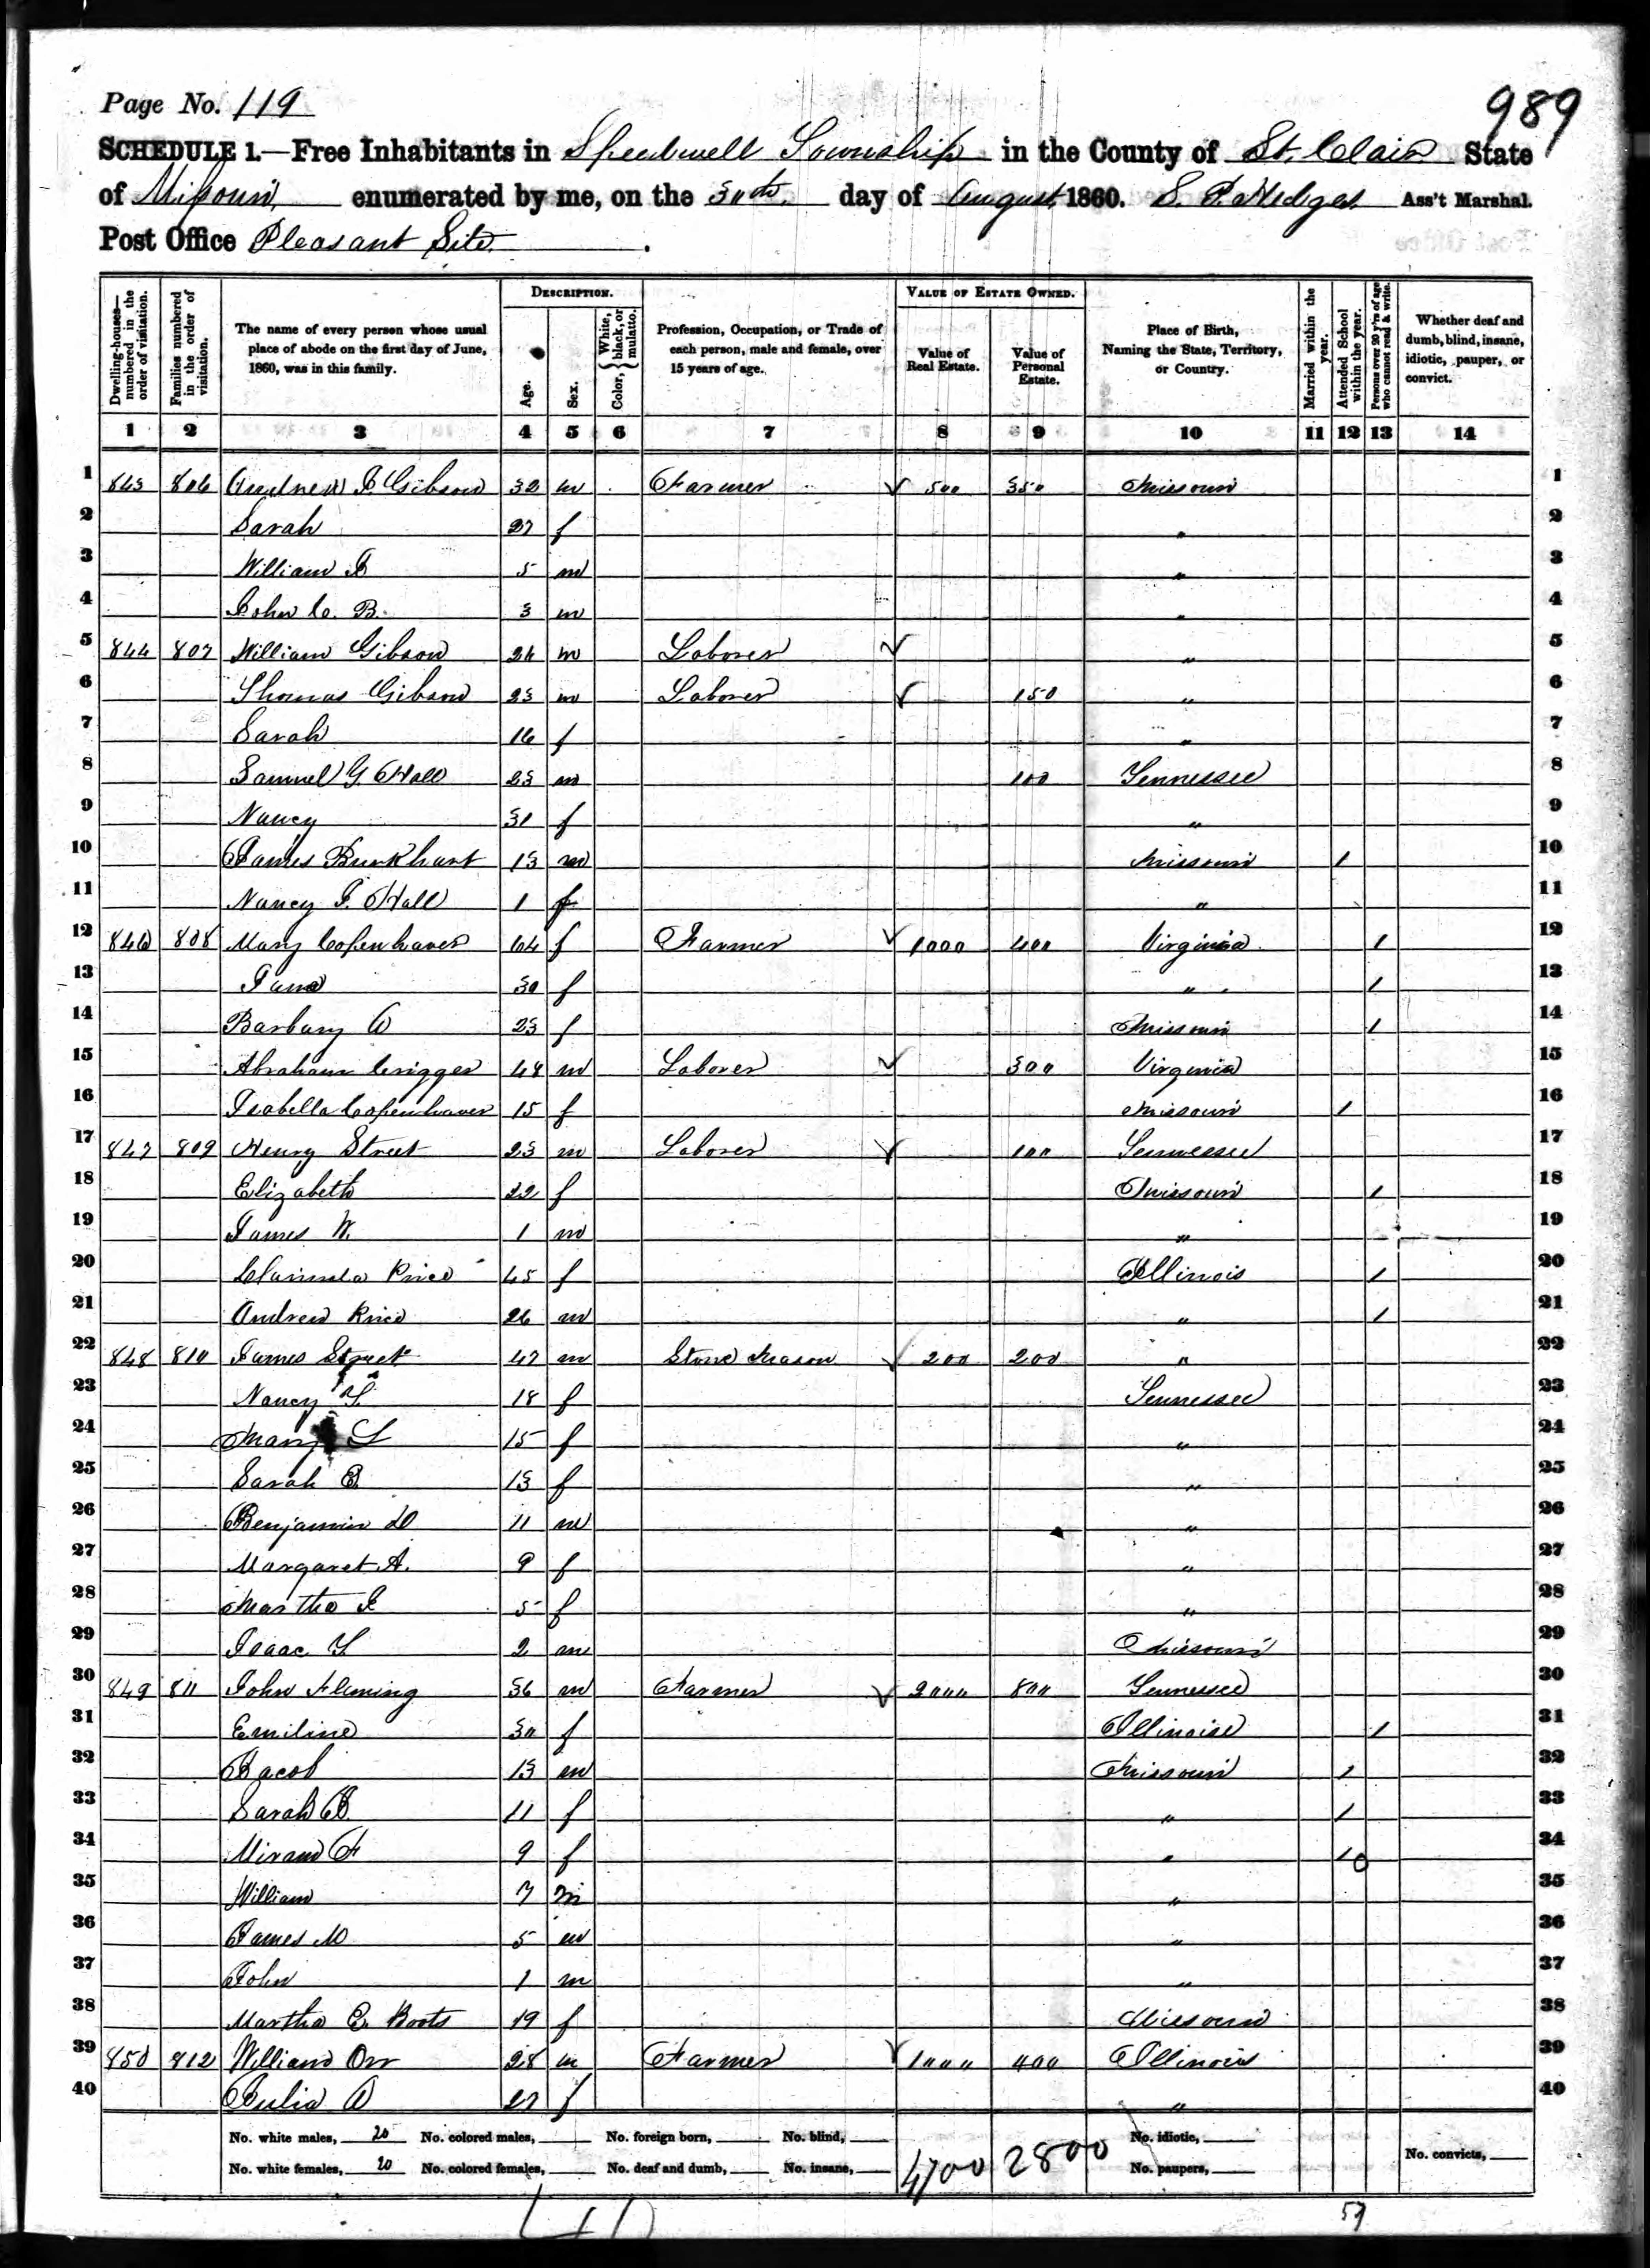 Page No. 119
989
SCHEDULE 1.—Free Inhabitants in Speedwell Township in the County of St. Clair State
of Missouri enumerated by me, on the 30th day of August 1860. S. P. Hedges Ass't Marshal.
Post Office Pleasant Site.
Dwelling-houses—numbered in the order of visitation. Families numbered in the order of visitation. The name of every person whose usual place of abode on the first day of June, 1860, was in this family. DESCRIPTION. Age. Sex. Color, { White, black, or mulatto. Profession, Occupation, or Trade of each person, male and female, over 15 years of age. VALUE OF ESTATE OWNED. Value of Real Estate. Value of Personal Estate. Place of Birth, Naming the State, Territory, or Country. Married within the year. Attended School within the year. Persons over 20 y'rs of age who cannot read & write. Whether deaf and dumb, blind, insane, idiotic, pauper, or convict.
1 2 3 4 5 6 7 8 9 10 11 12 13 14
1 843 806 Andrew J. Gibson 32 m Farmer 500 350 Missouri 1
2 Sarah 27 f " 2
3 William J 5 m " 3
4 John C. B. 3 m " 4
5 844 807 William Gibson 26 m Laborer " 5
6 Thomas Gibson 23 m Laborer 150 " 6
7 Sarah 16 f " 7
8 Samuel G. Hall 23 m 100 Tennessee 8
9 Nancy 31 f " 9
10 James Burkhart 13 m Missouri 1 10
11 Nancy J. Hall 1 f " 11
12 846 808 Mary Copenhaver 64 f Farmer 1000 400 Virginia 1 12
13 Jane 30 f " 1 13
14 Barbary A 23 f Missouri 1 14
15 Abraham Crigger 48 m Laborer 300 Virginia 15
16 Isabella Copenhaver 15 f Missouri 1 16
17 847 809 Henry Street 23 m Laborer 100 Tennessee 17
18 Elizabeth 22 f Missouri 1 18
19 James W. 1 m " 19
20 Clarinda Price 45 f Illinois 1 20
21 Andrew Price 26 m " 1 21
22 848 810 James Street 47 m Stone Mason 200 200 " 22
23 Nancy T. 18 f Tennessee 23
24 Mary L 15 f " 24
25 Sarah E. 13 f " 25
26 Benjamin D 11 m " 26
27 Margaret A. 9 f " 27
28 Martha J 5 f " 28
29 Isaac T 2 m Missouri 29
30 849 811 John Fleming 36 m Farmer 2000 800 Tennessee 30
31 Emiline 30 f Illinoise 1 31
32 Jacob 13 m Missouri 1 32
33 Sarah E. 11 f " 1 33
34 Miram F 9 f " 1 34
35 William 7 m " 35
36 James M 5 m " 36
37 John 1 m " 37
38 Martha E. Boots 19 f Missouri 38
39 850 812 William Orr 28 m Farmer 1000 400 Illinois 39
40 Julia A 27 f " 40
No. white males, 20 No. colored males, No. foreign born, No. blind, 4700 2800 No. idiotic,
No. white females, 20 No. colored females, No. deaf and dumb, No. insane, No. paupers, No. convicts,